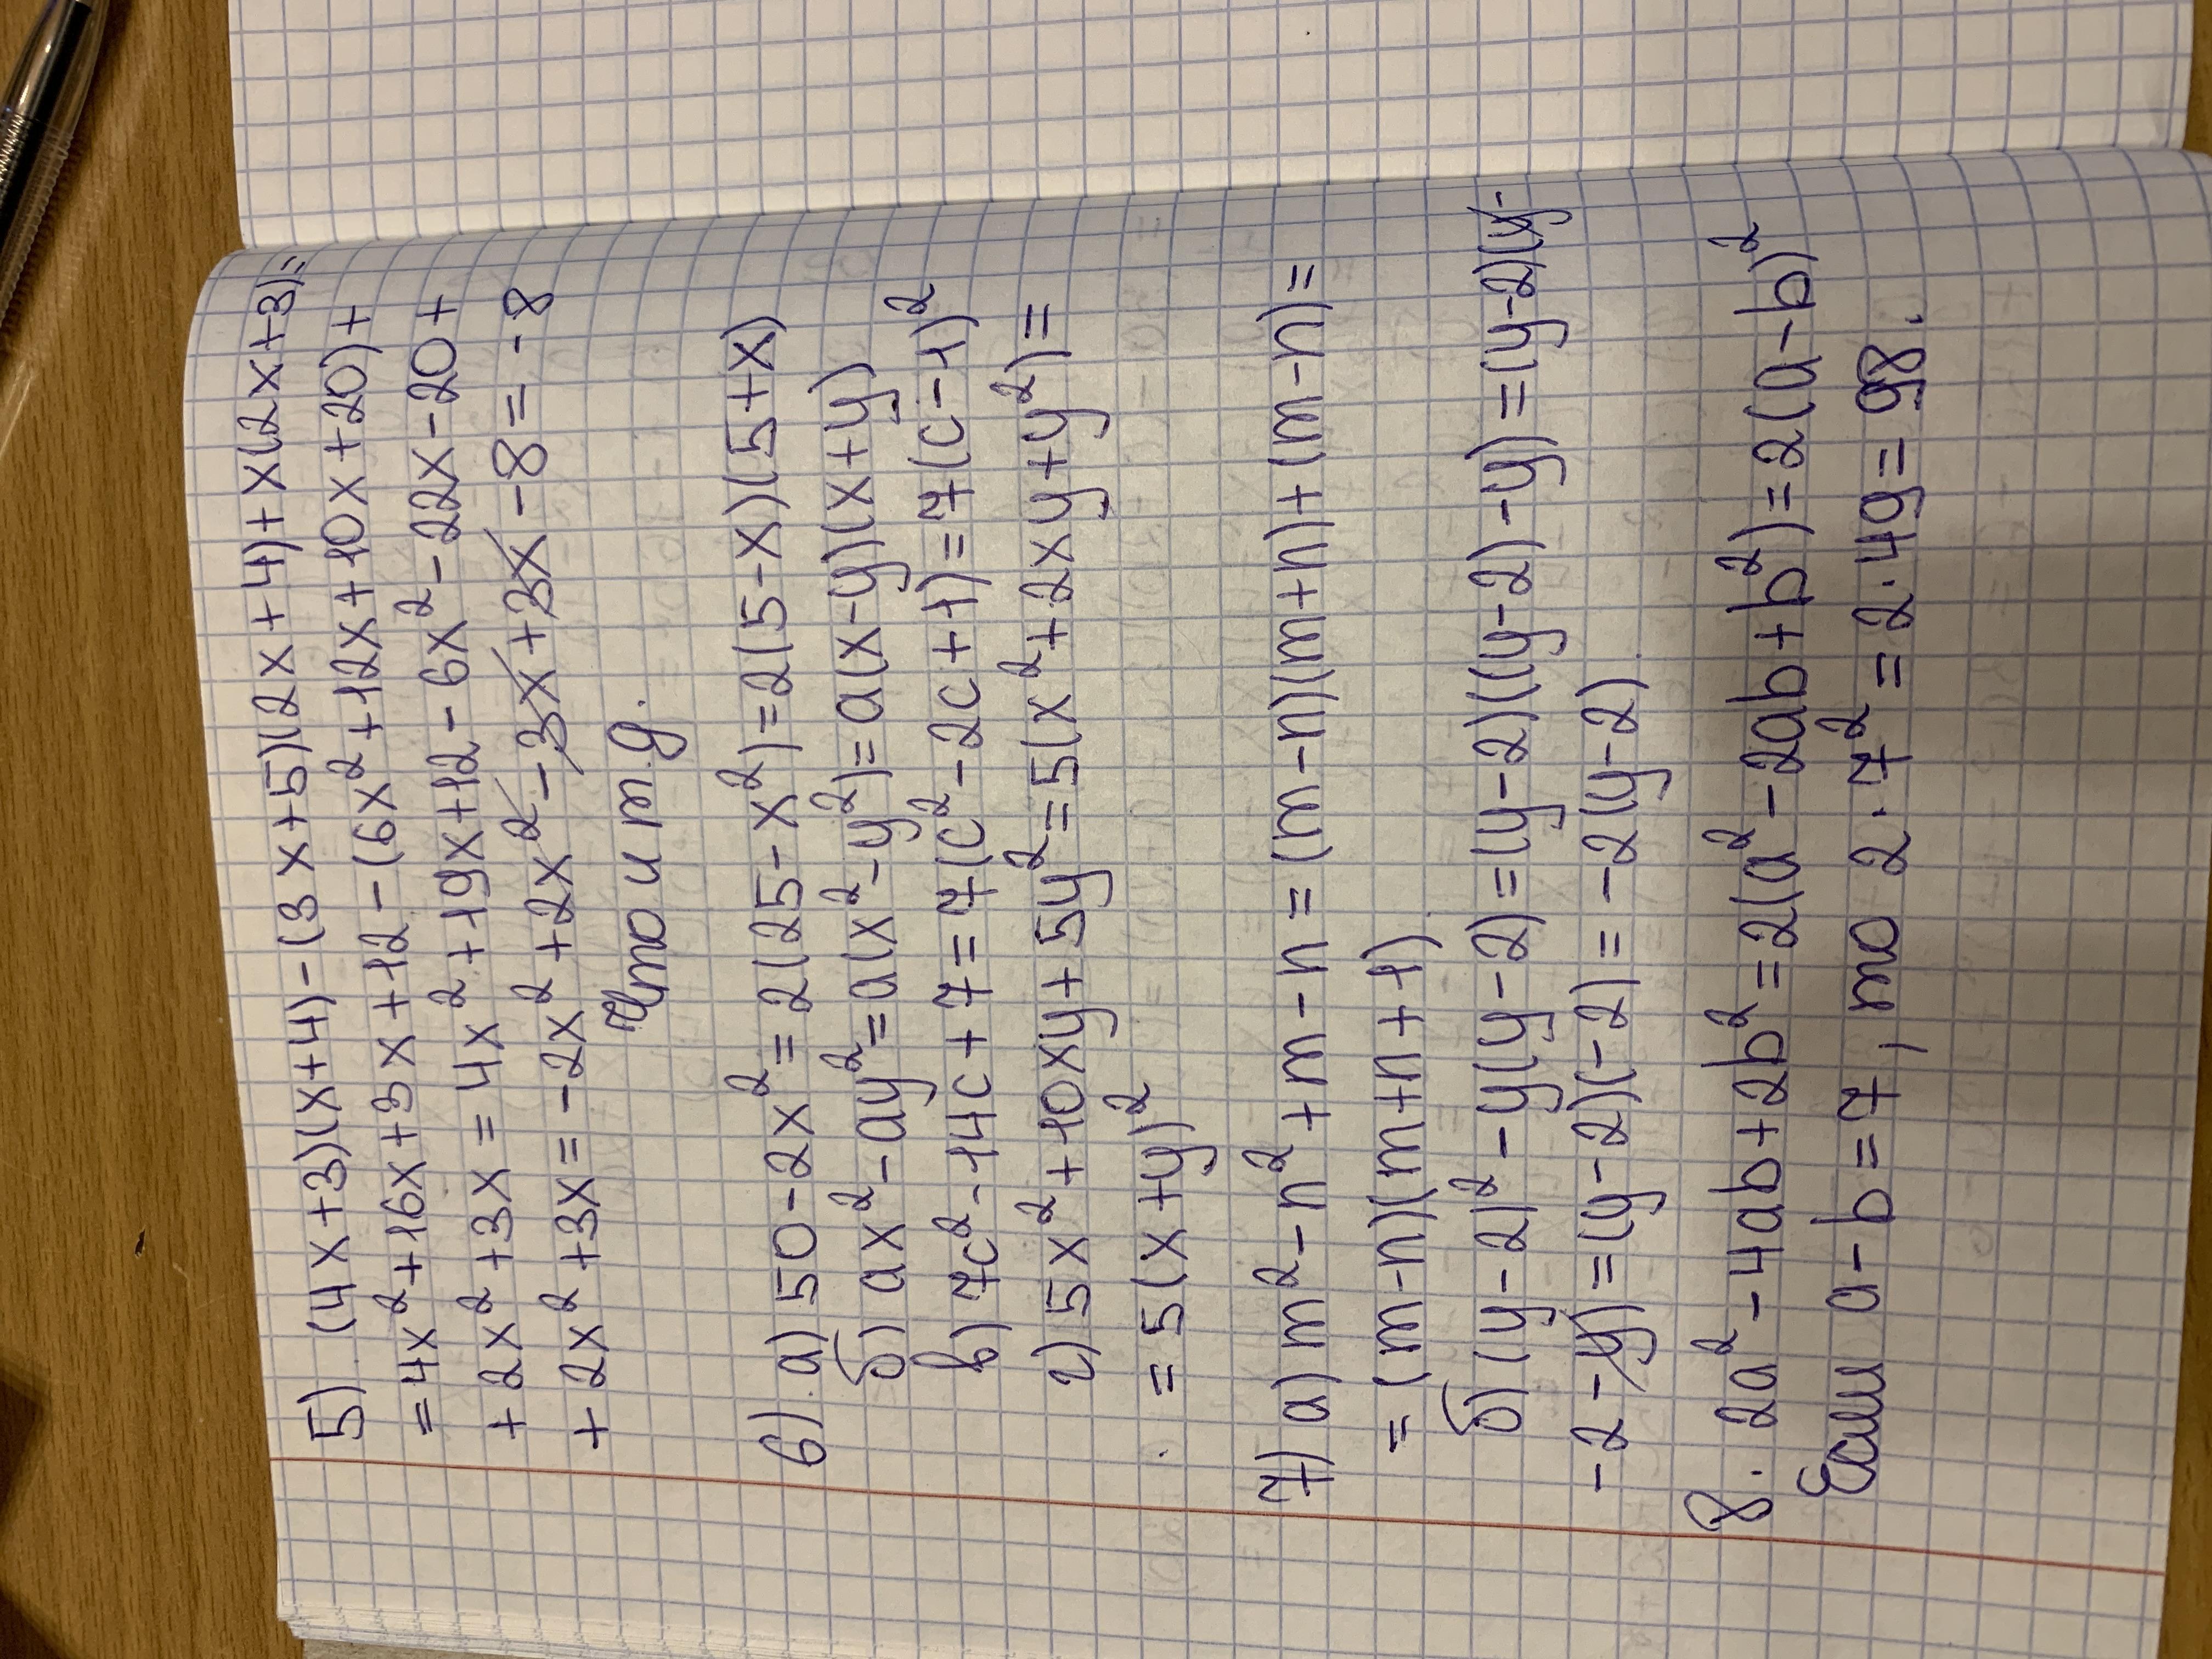 5). (4x+3)(x+4)-(3x+5)(2x+4)+x(2x+3)=
=4x²+16x+3x+12-(6x²+12x+10x+20)+
+2x²+3x=4x²+19x+12-6x²-22x-20+
+2x²+3x=-2x²+2x²-3x+3x-8=-8
Что и т.д.
6). а) 50-2x²=2(25-x²)=2(5-x)(5+x)
б) ax²-ay²=a(x²-y²)=a(x-y)(x+y)
в) 7c²-14c+7=7(c²-2c+1)=7(c-1)²
г) 5x²+10xy+5y²=5(x²+2xy+y²)=
=5(x+y)²
7) а) m²-n²+m-n=(m-n)(m+n)+(m-n)=
=(m-n)(m+n+1)
б) (y-2)²-y(y-2)=(y-2)((y-2)-y)=(y-2)(y-
-2-y)=(y-2)(-2)=-2(y-2)
8. 2a²-4ab+2b²=2(a²-2ab+b²)=2(a-b)²
Если a-b=7, то 2·7²=2·49=98.